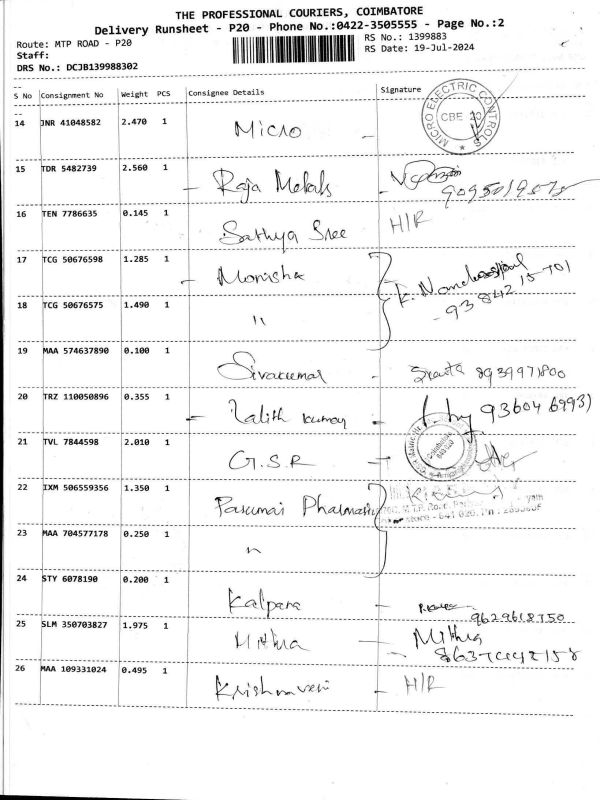 THE PROFESSIONAL COURIERS, COIMBATORE
Delivery Runsheet - P20 - Phone No.:0422-3505555 - Page No.:2
Route: MTP ROAD - P20
RS No.: 1399883
Staff:
RS Date: 19-Jul-2024
DRS No.: DCJB139988302
S No Consignment No Weight PCS Consignee Details Signature
14 JNR 41048582 2.470 1 Micro - MICRO ELECTRIC CONTROLS CBE
15 TDR 5482739 2.560 1 - Raja Metals -
16 TEN 7786635 0.145 1 Sathya Sree H/R
17 TCG 50676598 1.285 1 - Monisha
18 TCG 50676575 1.490 1 "
- 93 842 15-701
19 MAA 574637890 0.100 1 Sivakumar - 8939971800
20 TRZ 110050896 0.355 1 - Lalith Kumar - 93604 6993)
21 TVL 7844598 2.010 1 G.S.R -
22 IXM 506559356 1.350 1 Pasumai Pharmacy
23 MAA 704577178 0.250 1 "
24 STY 6078190 0.200 1 Kalpana -
9629618750
25 SLM 350703827 1.975 1 Mithra - Mithra
26 MAA 109331024 0.495 1 Krishnaveni - H/R